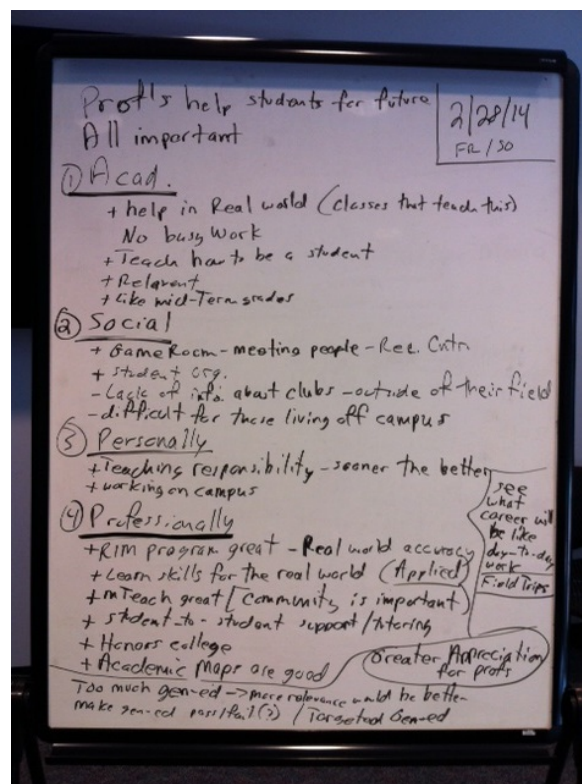 Prof's help students for future
All important
2/28/14
FR/SO
① Acad.
+ help in Real world (classes that teach this)
No busy Work
+ Teach how to be a student
+ Relavent
+ Like mid-Term grades
② Social
+ Game Room - meeting people - Rec. Cntr.
+ student org.
- Lack of info about clubs - outside of their field
- difficult for those living off campus
③ Personally
+ Teaching responsibility - sooner the better
+ working on campus
④ Professionally
+ RIM program great - Real world accuracy
+ Learn skills for the real world (Applied)
+ mTeach great [Community is important)
+ student-to-student support/tutoring
+ Honors college
+ Academic Maps are good
see
what
career will
be like
day-to-day
work
Field Trips
Greater Appreciation
for profs
Too much gen-ed → more relevance would be better
make gen-ed pass/fail(?) / Targeted Gen-ed